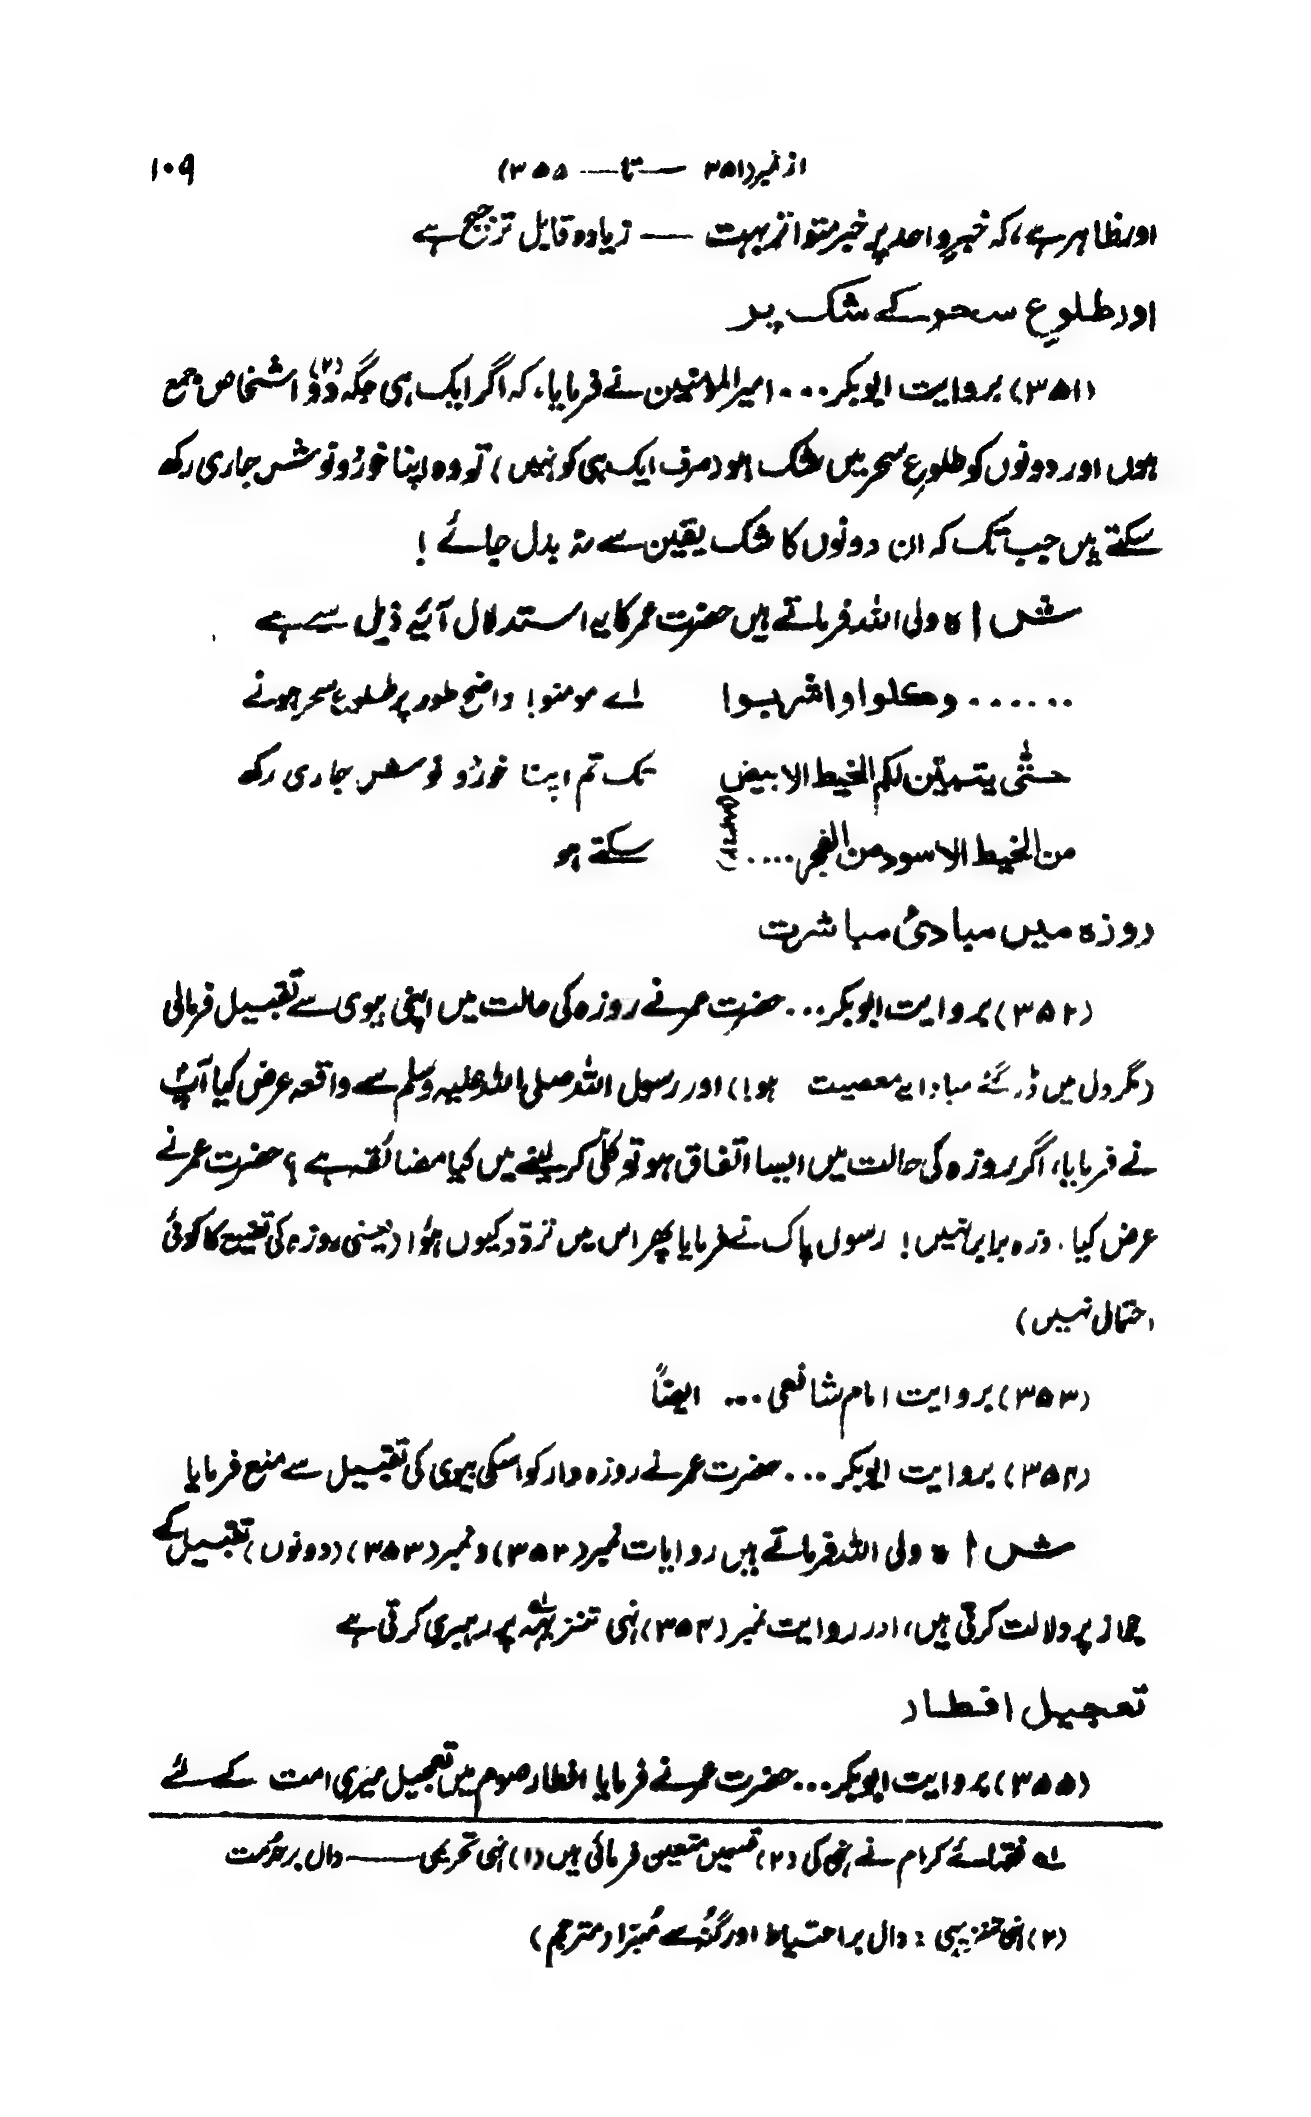 از نمبر (۳۵۱ — تا — ۳۵۵) ۱۰۹
اور ظاہر ہے، کہ خبرِ واحد پر خبر متواتر بہت — زیادہ قابل ترجیح ہے
اور طلوعِ سحر کے شک پر
(۳۵۱) بروایت ابوبکر ... امیر المؤمنین نے فرمایا، کہ اگر ایک ہی جگہ دو (۲) اشخاص جمع
ہوں اور دونوں کو طلوعِ سحر میں شک ہو (صرف ایک ہی کو نہیں) تو وہ اپنا خورد و نوش جاری رکھ
سکتے ہیں جب تک کہ ان دونوں کا شک یقین سے نہ بدل جائے !
ش ا ہ ولی اللہ فرماتے ہیں حضرت عمر کا یہ استدلال آیۂ ذیل سے ہے
...... وکلوا واشربوا اے مومنو! واضح طور پر طلوع سحر ہونے
حتّٰی یتبیّن لکم الخیط الابیض تک تم اپنا خورد و نوش جاری رکھ
من الخیط الاسود من الفجر .... سکتے ہو
روزہ میں مبادئ مباشرت
(۳۵۲) بروایت ابوبکر ... حضرت عمر نے روزہ کی حالت میں اپنی بیوی سے تقبیل فرمائی
(مگر دل میں ڈر گئے مبادا یہ معصیت ہو!) اور رسول اللہ صلی اللہ علیہ وسلم سے واقعہ عرض کیا آپؐ
نے فرمایا، اگر روزہ کی حالت میں ایسا اتفاق ہو تو کلّی کر لینے میں کیا مضائقہ ہے ؟ حضرت عمر نے
عرض کیا . ذرہ برابر نہیں ! رسول پاک نے فرمایا پھر اس میں تردّد کیوں ہؤا (یعنی روزہ کی تنقیح کا کوئی
احتمال نہیں)
(۳۵۳) بروایت امام شافعی ... ایضاً
(۳۵۴) بروایت ابوبکر ... حضرت عمر نے روزہ دار کو اسکی بیوی کی تقبیل سے منع فرمایا
ش ا ہ ولی اللہ فرماتے ہیں روایات نمبر (۳۵۲) و نمبر (۳۵۳) (دونوں) تقبیل کے
جواز پر دلالت کرتی ہیں، اور روایت نمبر (۳۵۴) نہی تنزیہہ لہ پر رہبری کرتی ہے
تعجیل افطار
(۳۵۵) بروایت ابوبکر ... حضرت عمر نے فرمایا افطار صوم میں تعجیل میری امت کے لئے
لہ فقہائے کرام نے نہی کی (۲) قسمیں متعین فرمائی ہیں (۱) نہی تحریمی — دال بر حرمت
(۲) نہی تنزیہی : دال بر احتیاط اور گنہ سے مُبرّا (مترجم)